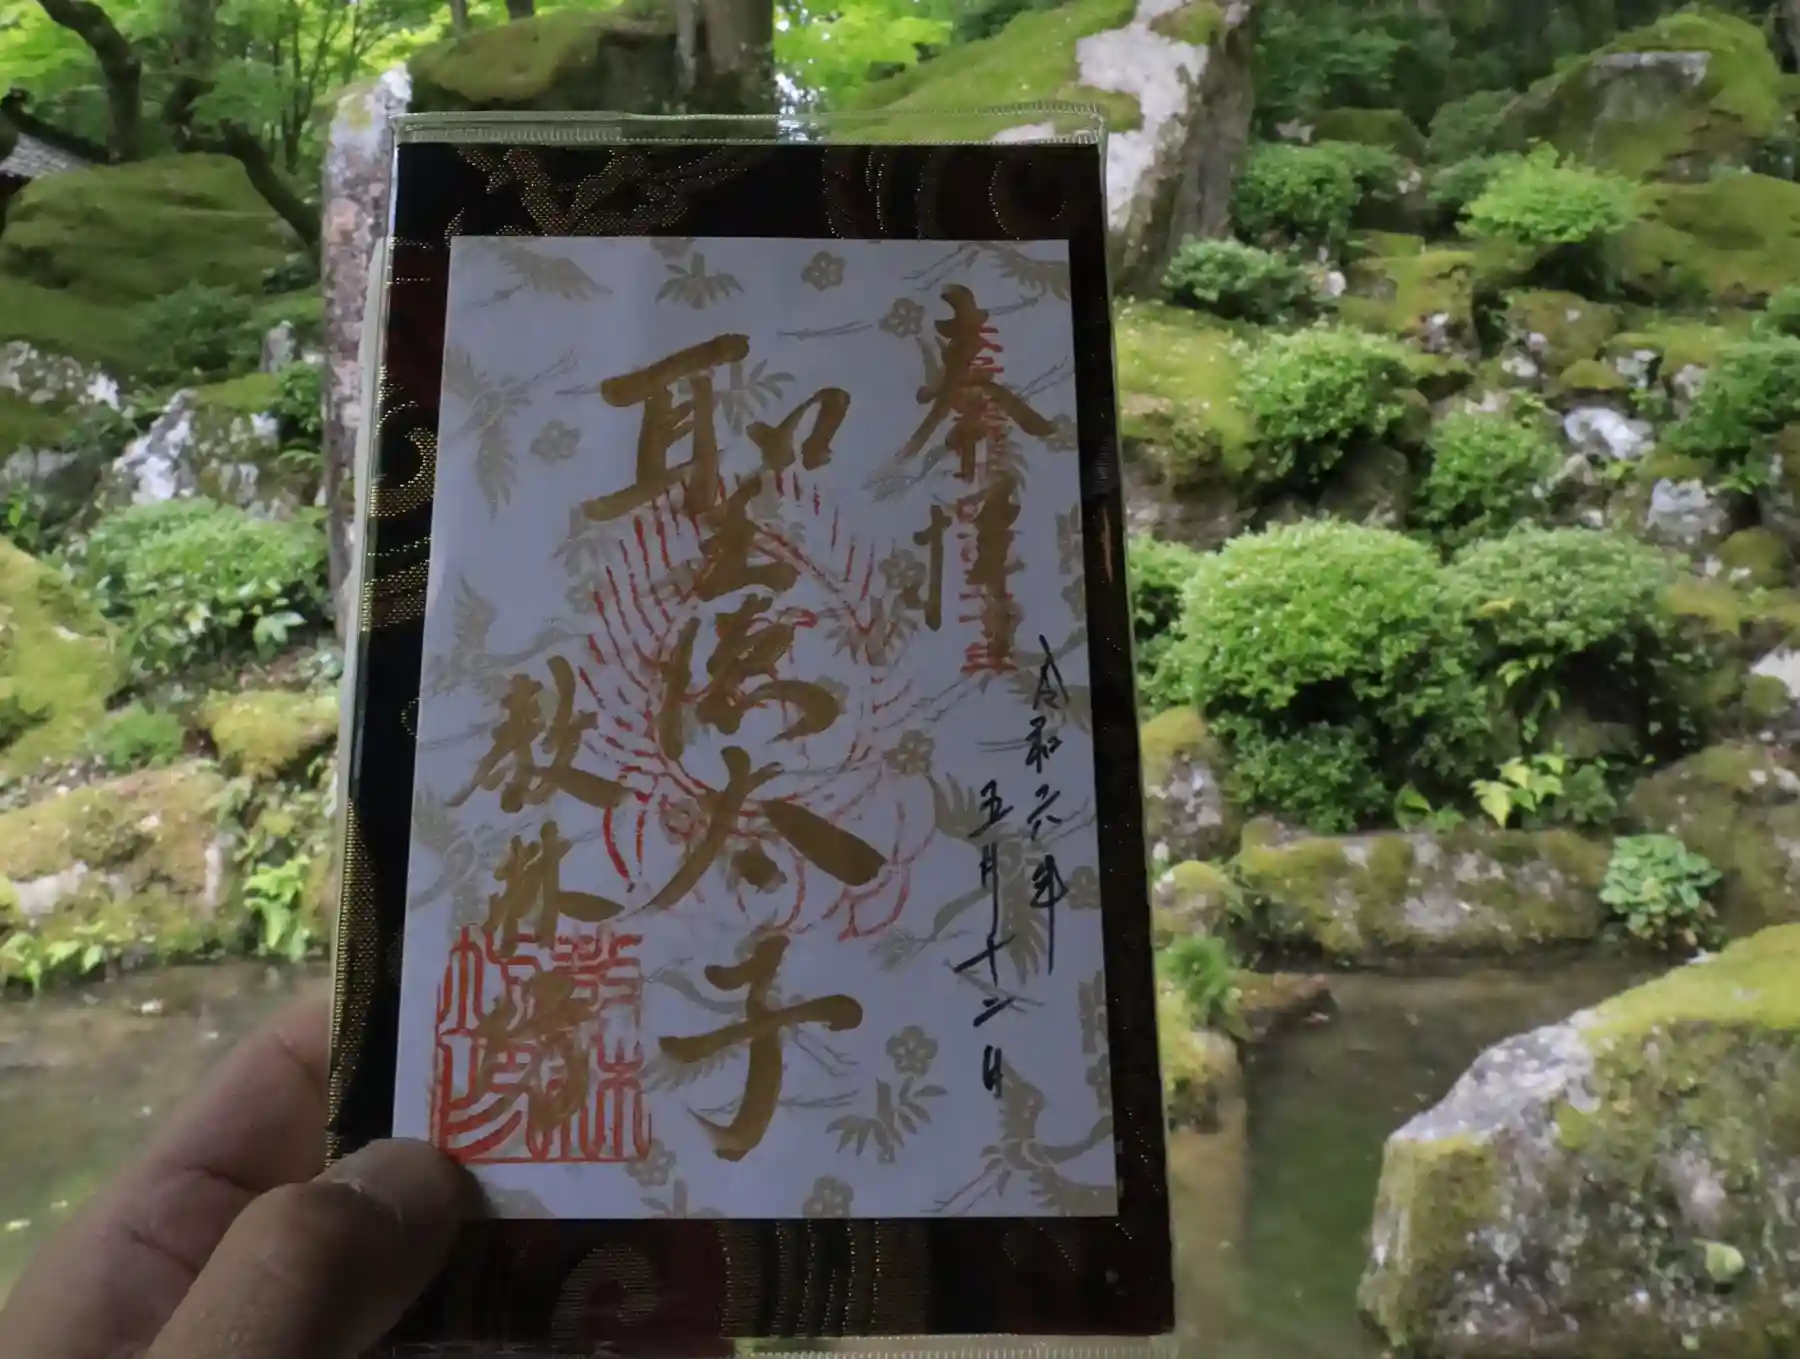 奉拝
令和六年
五月十二日
聖徳太子
教林坊
教林坊